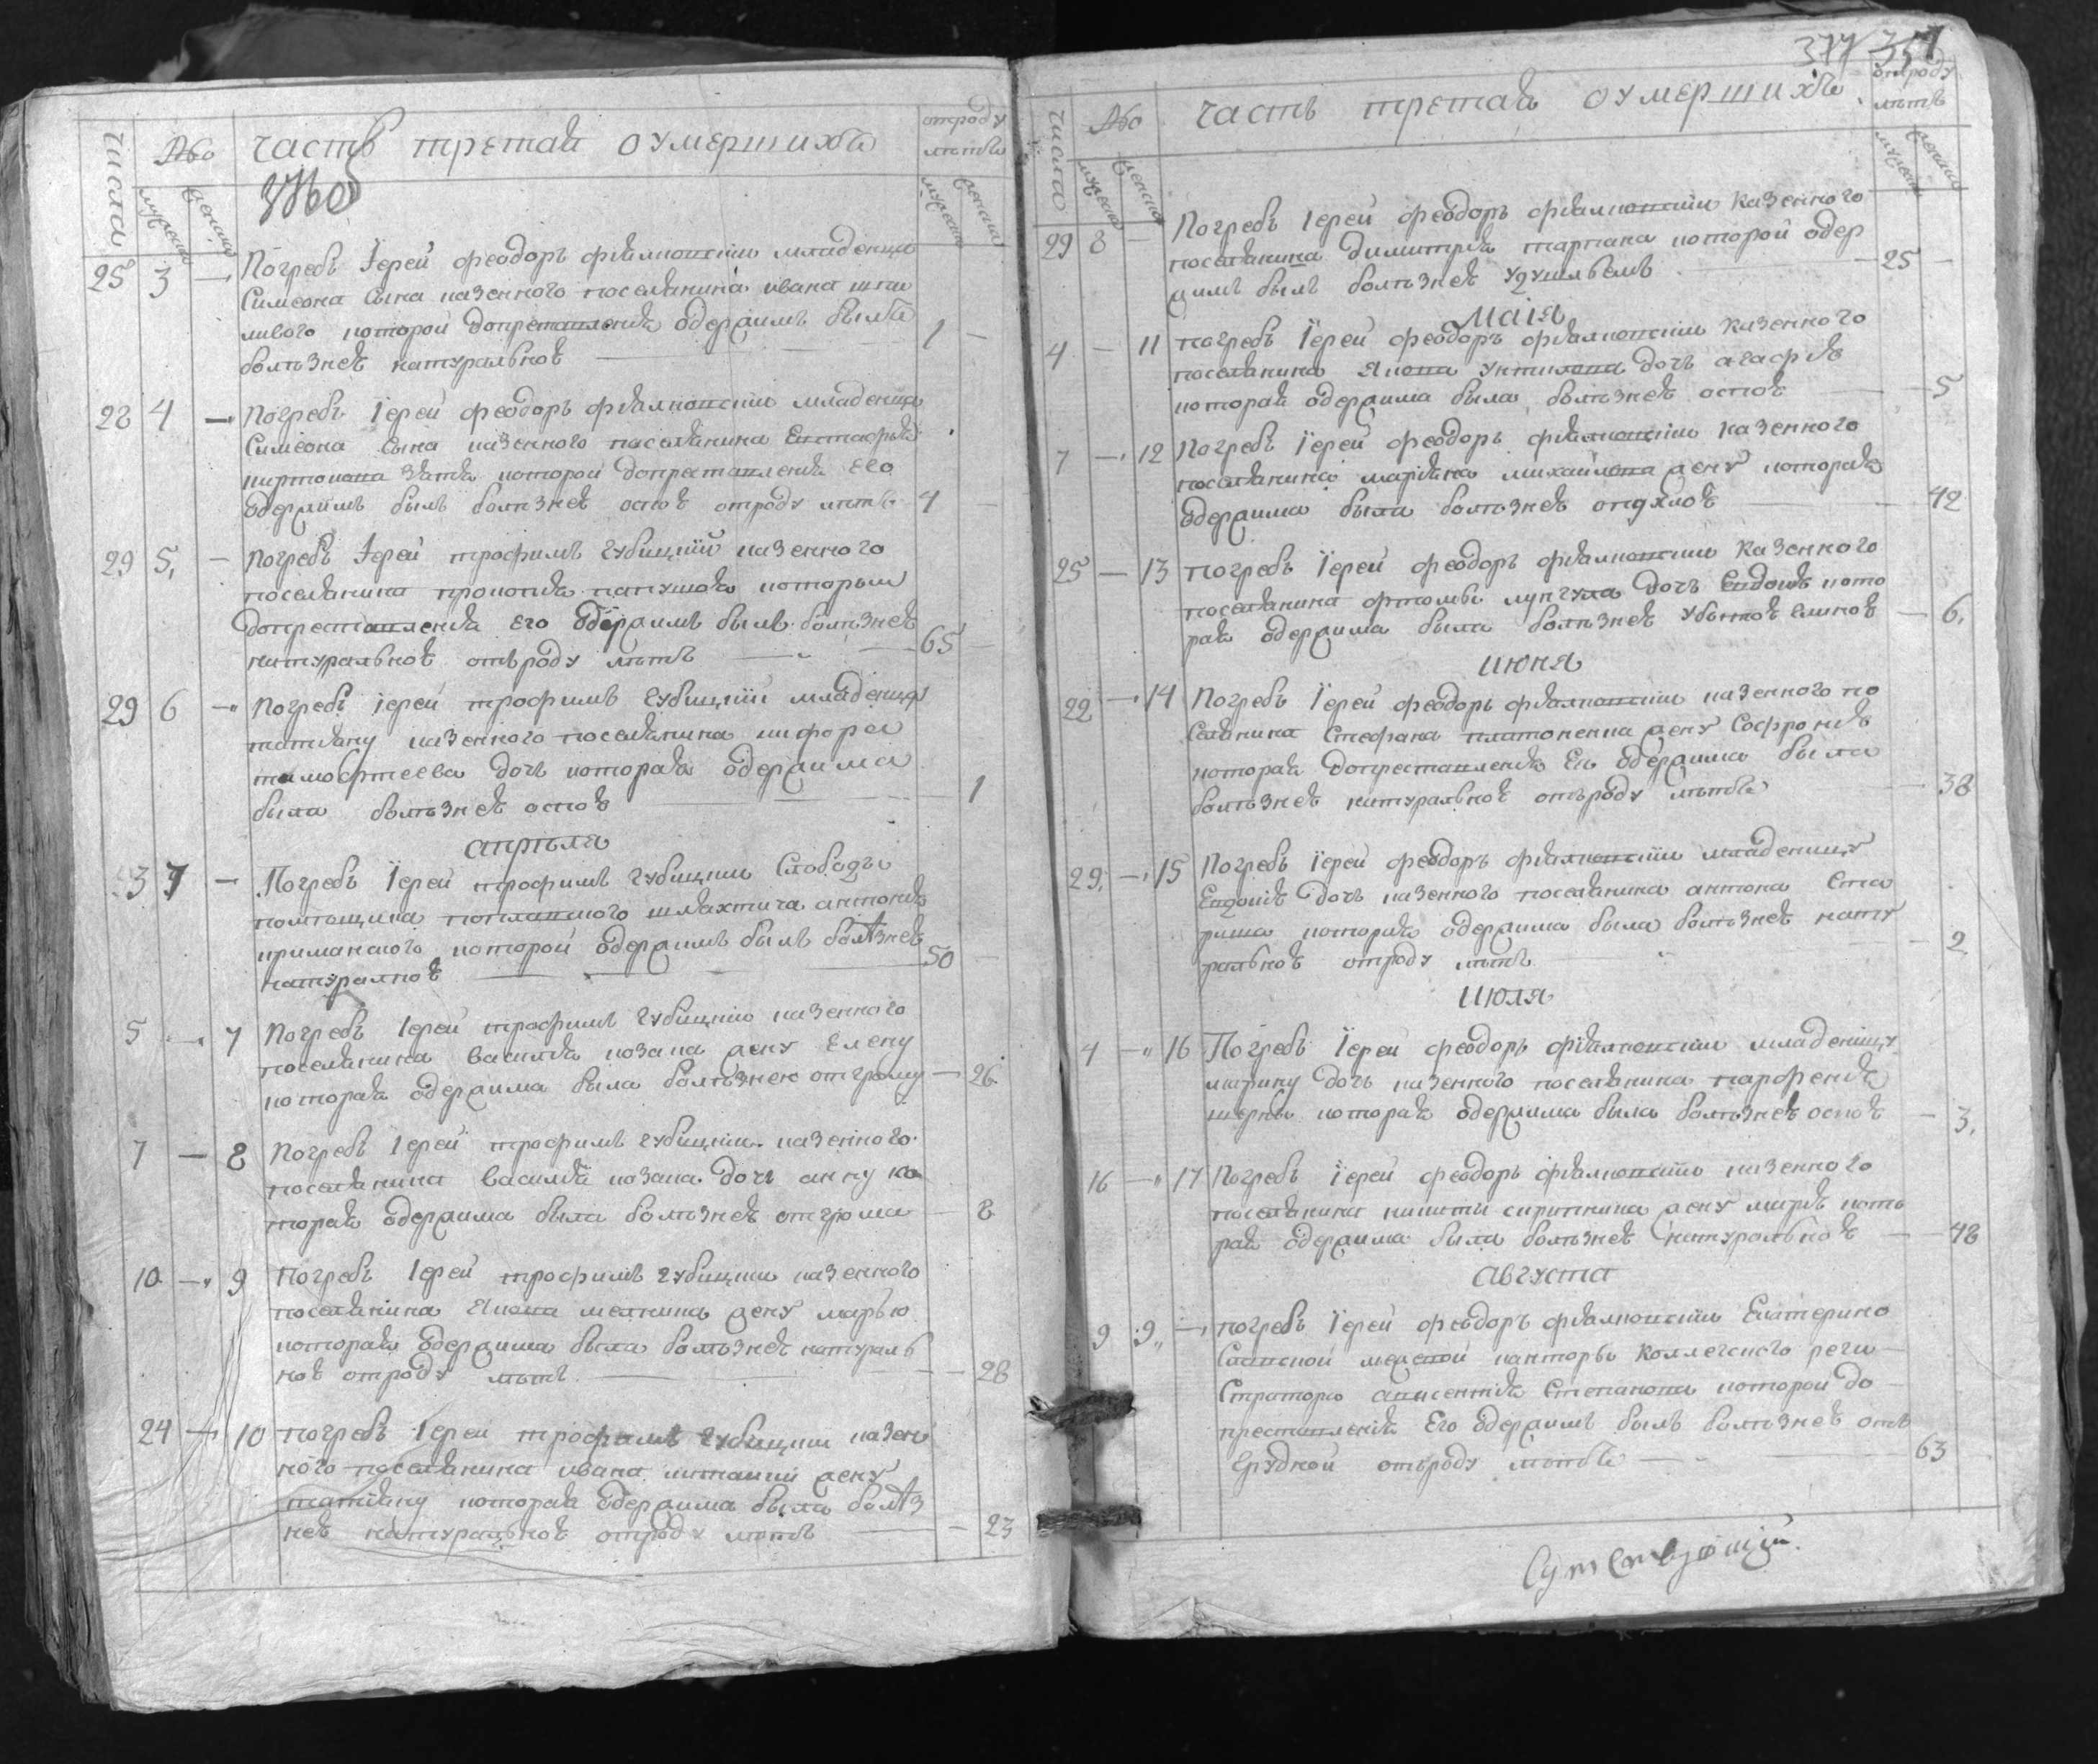 числа
№
мужеска
женска
часть третая о умершихъ
отроду
лѣтъ
мужеска
женска
25 3 — Погребъ Іерей феодоръ фіялковскій младенца
Симеона сына казенного поселянина ивана шпи
ливого которой допреставленія одержимъ былъ
болѣзнею натуральною 1 —
28 4 — Погребъ Іерей феодоръ фіялковскій младенца
Симеона сына казенного поселянина Евстафия
зятя которой допреставленія его
одержимъ былъ болѣзнею оспою отроду лѣтъ 4 —
29 5 — Погребъ Іерей трофимъ губицкій казенного
поселянина прокопия которыи
допреставленія его одержимъ былъ болѣзнею
натуральною отъроду лѣтъ 65 —
29 6 — Погребъ іерей трофимъ губицкіи младеницу
татіяну казенного поселянина никифора
тимофтеева дочь которая одержима
была болѣзнею оспою — 1
апрѣля
3 7 — Погребъ Іерей трофимъ губицкии Слободы
помѣщика польского шляхтича антонія
криманского которой одержимъ былъ болѣзнею
натуралною 50 —
5 — 7 Погребъ Іерей трофимъ губицкіи казенного
поселянина василия козака жену Елену
которая одержима была болѣзнею отгрому — 26
7 — 8 Погребъ Іерей трофимъ губицкіи казенного
поселянина василия козака дочь анну ко
торая одержима была болѣзнею отгрома — 8
10 — 9 Погребъ Іерей трофимъ губицкии казенного
поселянина Якова мелника жену марью
которая одержима была болѣзнею натураль
ною отроду лѣтъ — 28
24 — 10 погребъ Іереи трофимъ губицкии казен
ного поселянина ивана жену
татіяну которая одержима была болѣз
нею натуральною отроду лѣтъ — 23
377 351
числа
№
мужеска
женска
часть третая о умершихъ
отроду
лѣтъ
мужеска
женска
29 8 — Погребъ Іерей феодоръ фіялковскіи казенного
поселянина димитрия тарпака которой одер
жимъ былъ болѣзнею удушлѣемъ 25 —
маія
4 — 11 погребъ Іерей феодоръ фіялковскіи казенного
поселянина Якова дочь агафию
которая одержима была болѣзнею оспою — 5
7 — 12 Погребъ Іерей феодоръ фіялковскіи казенного
поселянина марияна михайлова жену которая
одержима была болѣзнею опухлою — 42
25 — 13 погребъ Іерей феодоръ фіялковскіи казенного
поселянина дочь Евдокію кото
рая одержима была болѣзнею — 6
июня
22 — 14 Погребъ Іерей феодоръ фіялковскіи казенного по
селянина Стефана платоненка жену Софронию
которая допреставленія Ея одержима была
болѣзнею натуральною отъроду лѣтъ — 38
29 — 15 Погребъ Іерей феодоръ фіялковскіи младеницу
Евдокію дочь казенного поселянина антона Ста
риша которая одержима была болѣзнею нату
ральною отроду лѣтъ — 2
Июля
4 — 16 Погребъ Іерей феодоръ фіялковскіи младеницу
марину дочь казенного поселянина парфения
шербы которая одержима была болѣзнею оспою — 3
16 — 17 Погребъ Іерей феодоръ фіялковскіи казенного
поселянина никиты жену марию кото
рая одержима была болѣзнею натуральною — 48
августа
9 9 — погребъ Іерей феодоръ фіялковскіи Екатерино
Славской межевой канторы коллегского реги
стратора авксентия Степанова которой до
преставленія Его одержимъ былъ болѣзнею отъ
грудной отъроду лѣтъ 63